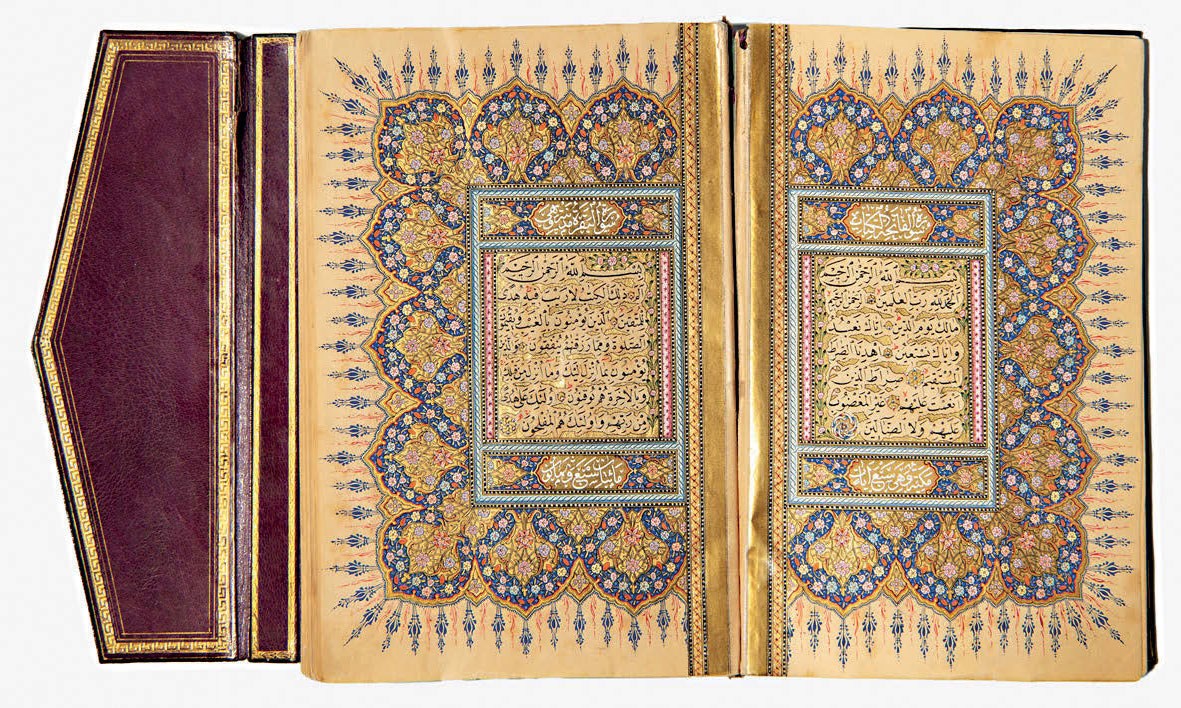 سورة الفاتحة الكتاب
بسم الله الرحمن الرحيم
الحمد لله رب العلمين الرحمن الرحيم
مالك يوم الدين اياك نعبد
واياك نستعين اهدنا الصراط
المستقيم صراط الذين
انعمت عليهم غير المغضوب
عليهم ولا الضالين
مكية وهي سبع ايات
سورة البقرة مدنية وهي
بسم الله الرحمن الرحيم
الم ذلك الكتب لا ريب فيه هدى
للمتقين الذين يؤمنون بالغيب ويقيمون
الصلوة ومما رزقنهم ينفقون والذين
يؤمنون بما انزل اليك وما انزل من قبلك
وبالاخرة هم يوقنون اولئك على هدى
من ربهم واولئك هم المفلحون
مائتان